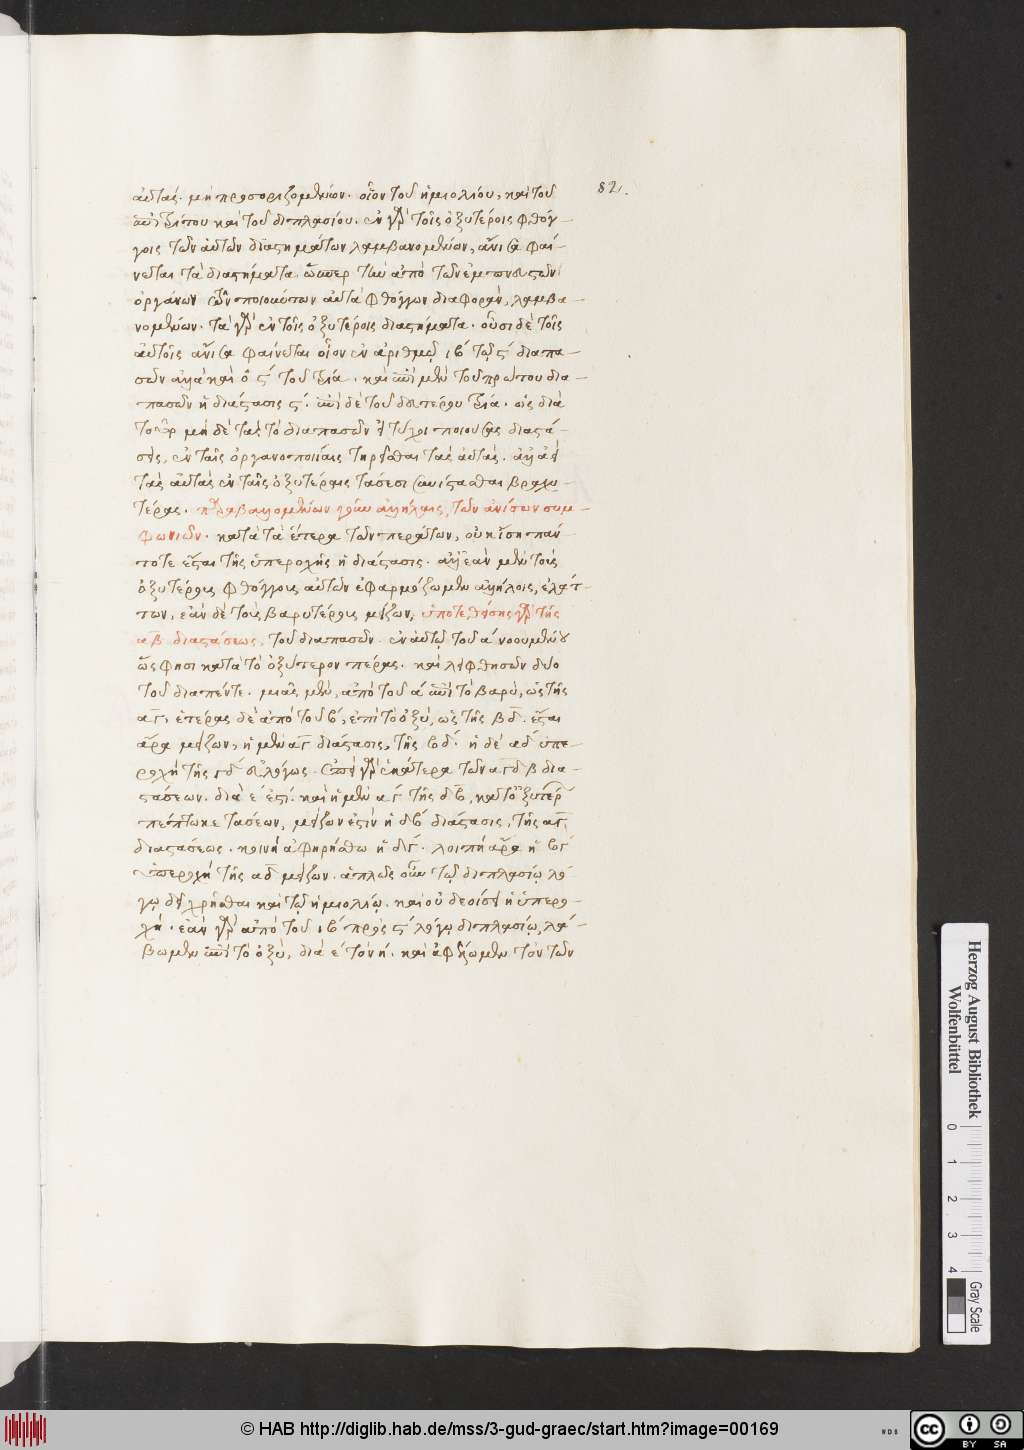 82.
αὐτάς. μὴ προσοριζομένων. οἷον τοῦ ἡμιολίου, καὶ τοῦ
ἐπιτρίτου καὶ τοῦ διπλασίου. ἐν γὰρ τοῖς ὀξυτέροις φθόγ-
γοις τῶν αὐτῶν διαστημάτων λαμβανομένων, ἄνισα φαί-
νεται τὰ διαστήματα. ὥσπερ τῶν ἀπὸ τῶν ἐμπνευστῶν
ὀργάνων τὴν ποιούντων διαφορὰν, λαμβα-
νομένων. τὰ γὰρ ἐν τοῖς ὀξυτέροις διαστήματα. οὖσι δὲ τοῖς
αὐτοῖς ἄνισα φαίνεται οἷον ἐν ἀριθμῷ ιβ τῷ ϛ διαπα-
σῶν ἀλλὰ καὶ ὁ ϛ τοῦ τρία. καὶ ἐπὶ μὲν τοῦ πρώτου δια-
πασῶν ἡ διάστασις ϛ. ἐπὶ δὲ τοῦ δευτέρου τρία. ὡς διὰ
τοῦτο μὴ δὲ τὰς τὸ διαπασῶν ποιούσας διαστά-
σεις, ἐν ταῖς ὀργανοποιίαις τηρεῖσθαι τὰς αὐτάς. ἀλλ' ἀεὶ
τὰς αὐτὰς ἐν ταῖς ὀξυτέραις τάσεσι συνίστασθαι βραχυ-
τέρας. παραβαλλομένων γοῦν ἀλλήλαις, τῶν ἀνίσων συμ-
φωνιῶν. κατὰ τὰ ἕτερα τῶν περάτων, οὐκ ἴση πάν-
ποτε ἔσται τῆς ὑπεροχῆς ἡ διάστασις. ἀλλ' ἐὰν μὲν τοὺς
ὀξυτέρους φθόγγους αὐτῶν ἐφαρμόζωμεν ἀλλήλοις, ἐλάτ-
των, ἐὰν δὲ τοὺς βαρυτέρους μείζων, ὑποτεθείσης γὰρ τῆς
αβ διαστάσεως, τοῦ διαπασῶν. ἐν αὐτῷ τοῦ α νοουμένου
ὥς φησι κατὰ τὸ ὀξύτερον πέρας. καὶ ληφθεισῶν δύο
τοῦ διαπέντε. μιᾶς μὲν, ἀπὸ τοῦ α ἐπὶ τὸ βαρὺ, ὡς τῆς
αγ, ἑτέρας δὲ ἀπὸ τοῦ β, ἐπὶ τὸ ὀξὺ, ὡς τῆς βδ. ἔσται
ἄρα μείζων, ἡ μὲν αγ διάστασις, τῆς βδ. ἡ δὲ αδ ὑπε-
ροχὴ τῆς γδ εὐλόγως. ἐπεὶ γὰρ ἑκάτερα τῶν αγ δβ δια-
στάσεων. διὰ ε ἐστί. καὶ ἡ μὲν αγ τῆς δβ, κατ' ὀξυτέρ
πέπτωκε τάσεων, μείζων ἐστὶν ἡ δβ διάστασις, τῆς αγ,
διαστάσεως. κοινὴ ἀφῃρήσθω ἡ δγ. λοιπὴ ἄρα ἡ βγ
ὑπεροχὴ τῆς αδ μείζων. ἁπλῶς οὖν τῷ διπλασίῳ λό-
γῳ δεῖ χρῆσθαι καὶ τῷ ἡμιολίῳ. καὶ οὐ δεοίσει ἡ ὑπερο-
χή. ἐὰν γὰρ ἀπὸ τοῦ ιβ πρὸς ϛ λόγῳ διπλασίῳ, λά-
βωμεν ἐπὶ τὸ ὀξὺ, διὰ ε τὸν η. καὶ ἀφίξωμεν τὸν τῶν
Herzog August Bibliothek
Wolfenbüttel
0 1 2 3 4
Gray Scale
© HAB http://diglib.hab.de/mss/3-gud-graec/start.htm?image=00169
cc BY SA